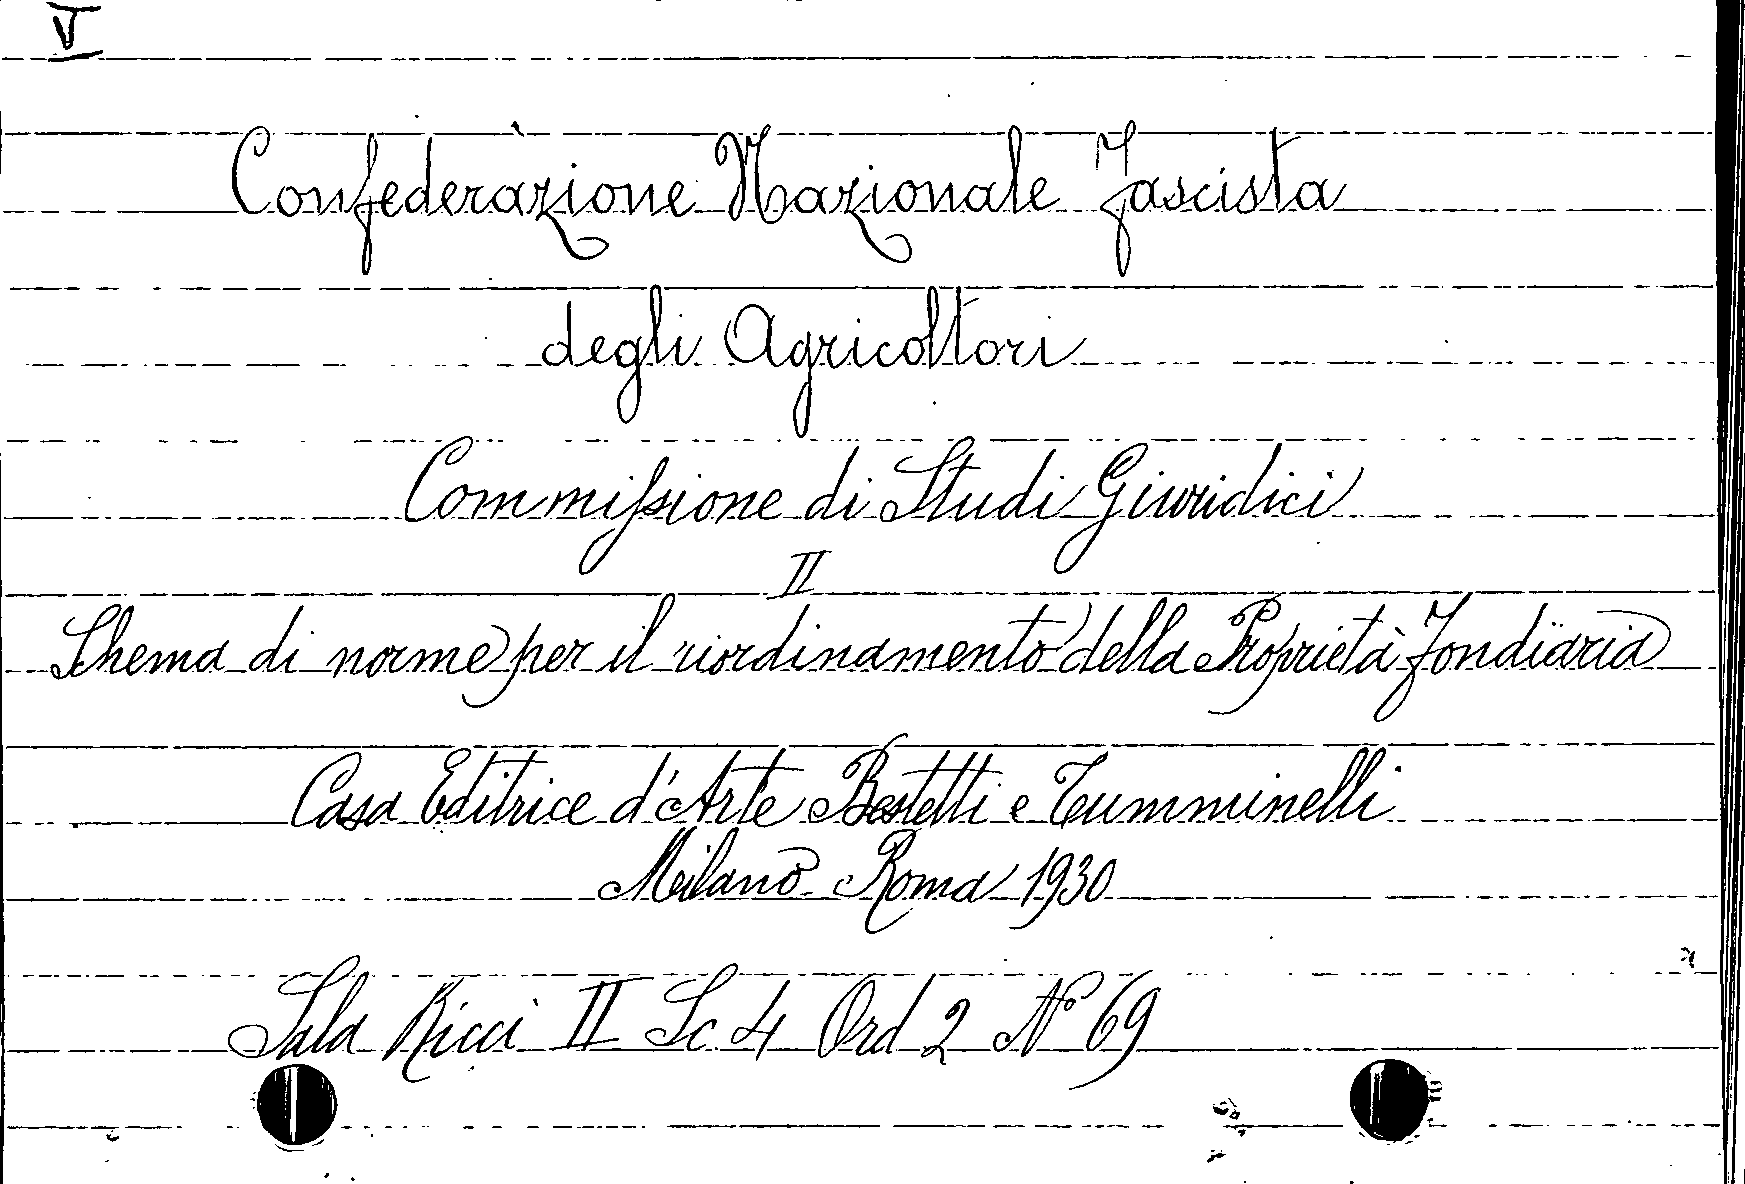 V
Confederazione Nazionale Fascista
degli Agricoltori
Commissione di Studi Giuridici
II
Schema di norme per il riordinamento della Proprietà Fondiaria
Casa Editrice d'Arte Bestetti e Tumminelli
Milano Roma 1930
Sala Ricci II Sc 4 Ord 2 N° 69